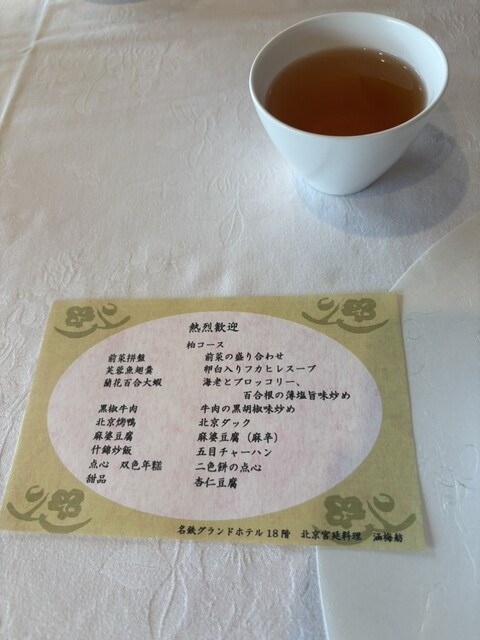 熱烈歓迎
柏コース
前菜拼盤 前菜の盛り合わせ
芙蓉魚翅羹 卵白入りフカヒレスープ
蘭花百合大蝦 海老とブロッコリー、
百合根の薄塩旨味炒め
黒椒牛肉 牛肉の黒胡椒味炒め
北京烤鴨 北京ダック
麻婆豆腐 麻婆豆腐（麻辛）
什錦炒飯 五目チャーハン
点心 双色年糕 二色餅の点心
甜品 杏仁豆腐
名鉄グランドホテル18階 北京宮廷料理 涵梅舫